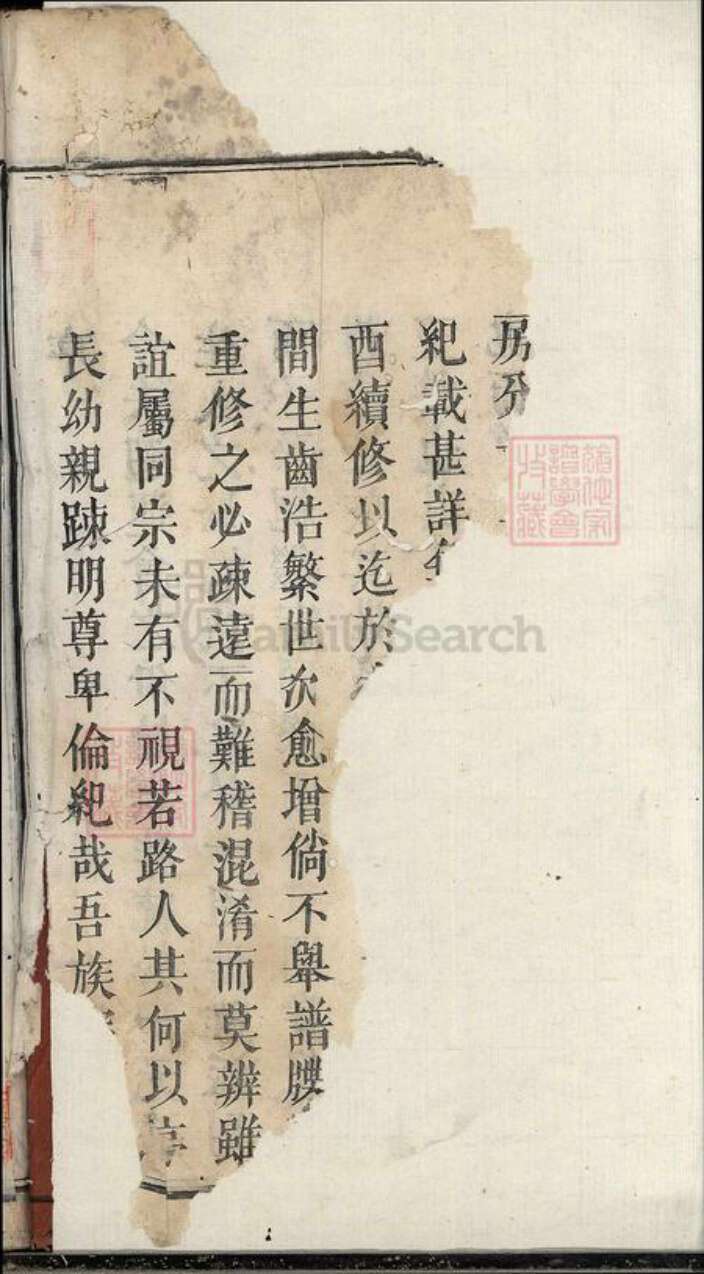 房分
紀載甚詳
酉續修以迄於
間生齒浩繁世次愈增倘不舉譜牒
重修之必疎遠而難稽混淆而莫辨雖
誼屬同宗未有不視若路人其何以序
長幼親踈明尊卑倫紀哉吾族
FamilySearch
譜學會
收藏